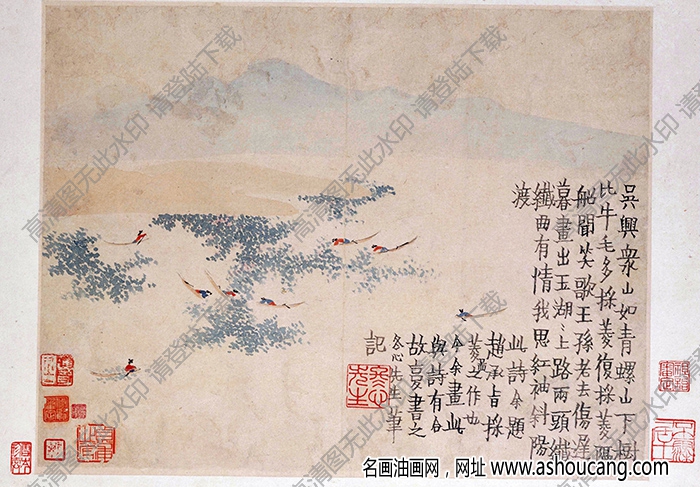 吳興衆山如青螺山下樹
比牛毛多採菱復採菱隔
船聞笑歌王孫老去傷遲
暮畫出玉湖〻上路兩頭纖
纖曲有情我思紅袖斜陽
渡
此詩余題
趙承旨採
菱圖之作也
今余畫此
與詩有合
故亟書之
冬心先生筆
記
冬心先生
高清图无此水印 请登陆下载
名画油画网，网址 www.ashoucang.com